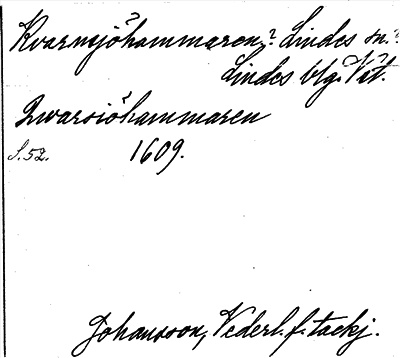 Kvarnsjöhammaren? Lindes sn.?
Lindes blg. Vät.
Qwarsiöhammaren
S. 52. 1609.
Johansson, Vederl. f. tackj.